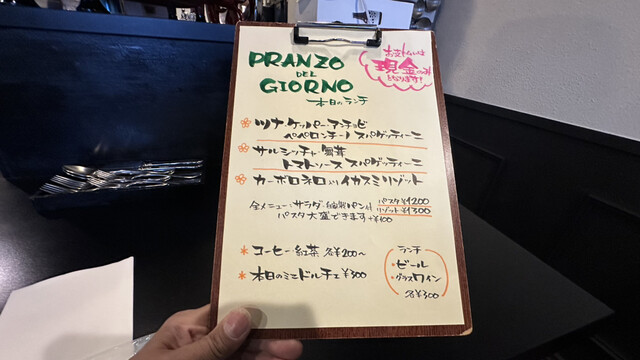 PRANZO
DEL
GIORNO
本日のランチ
お支払いは
現金のみ
となります!
ツナ ケッパー アンチョビ
ペペロンチーノ スパゲッティーニ
サルシッチャ 舞茸
トマトソース スパゲッティーニ
カーボロネロ入り イカスミリゾット
全メニュー:サラダ・自家製パン付
パスタ ¥1200
リゾット ¥1300
パスタ大盛できます +¥100
コーヒー・紅茶 各¥200〜
本日のミニドルチェ ¥300
ランチ
・ビール
・グラスワイン
各¥300